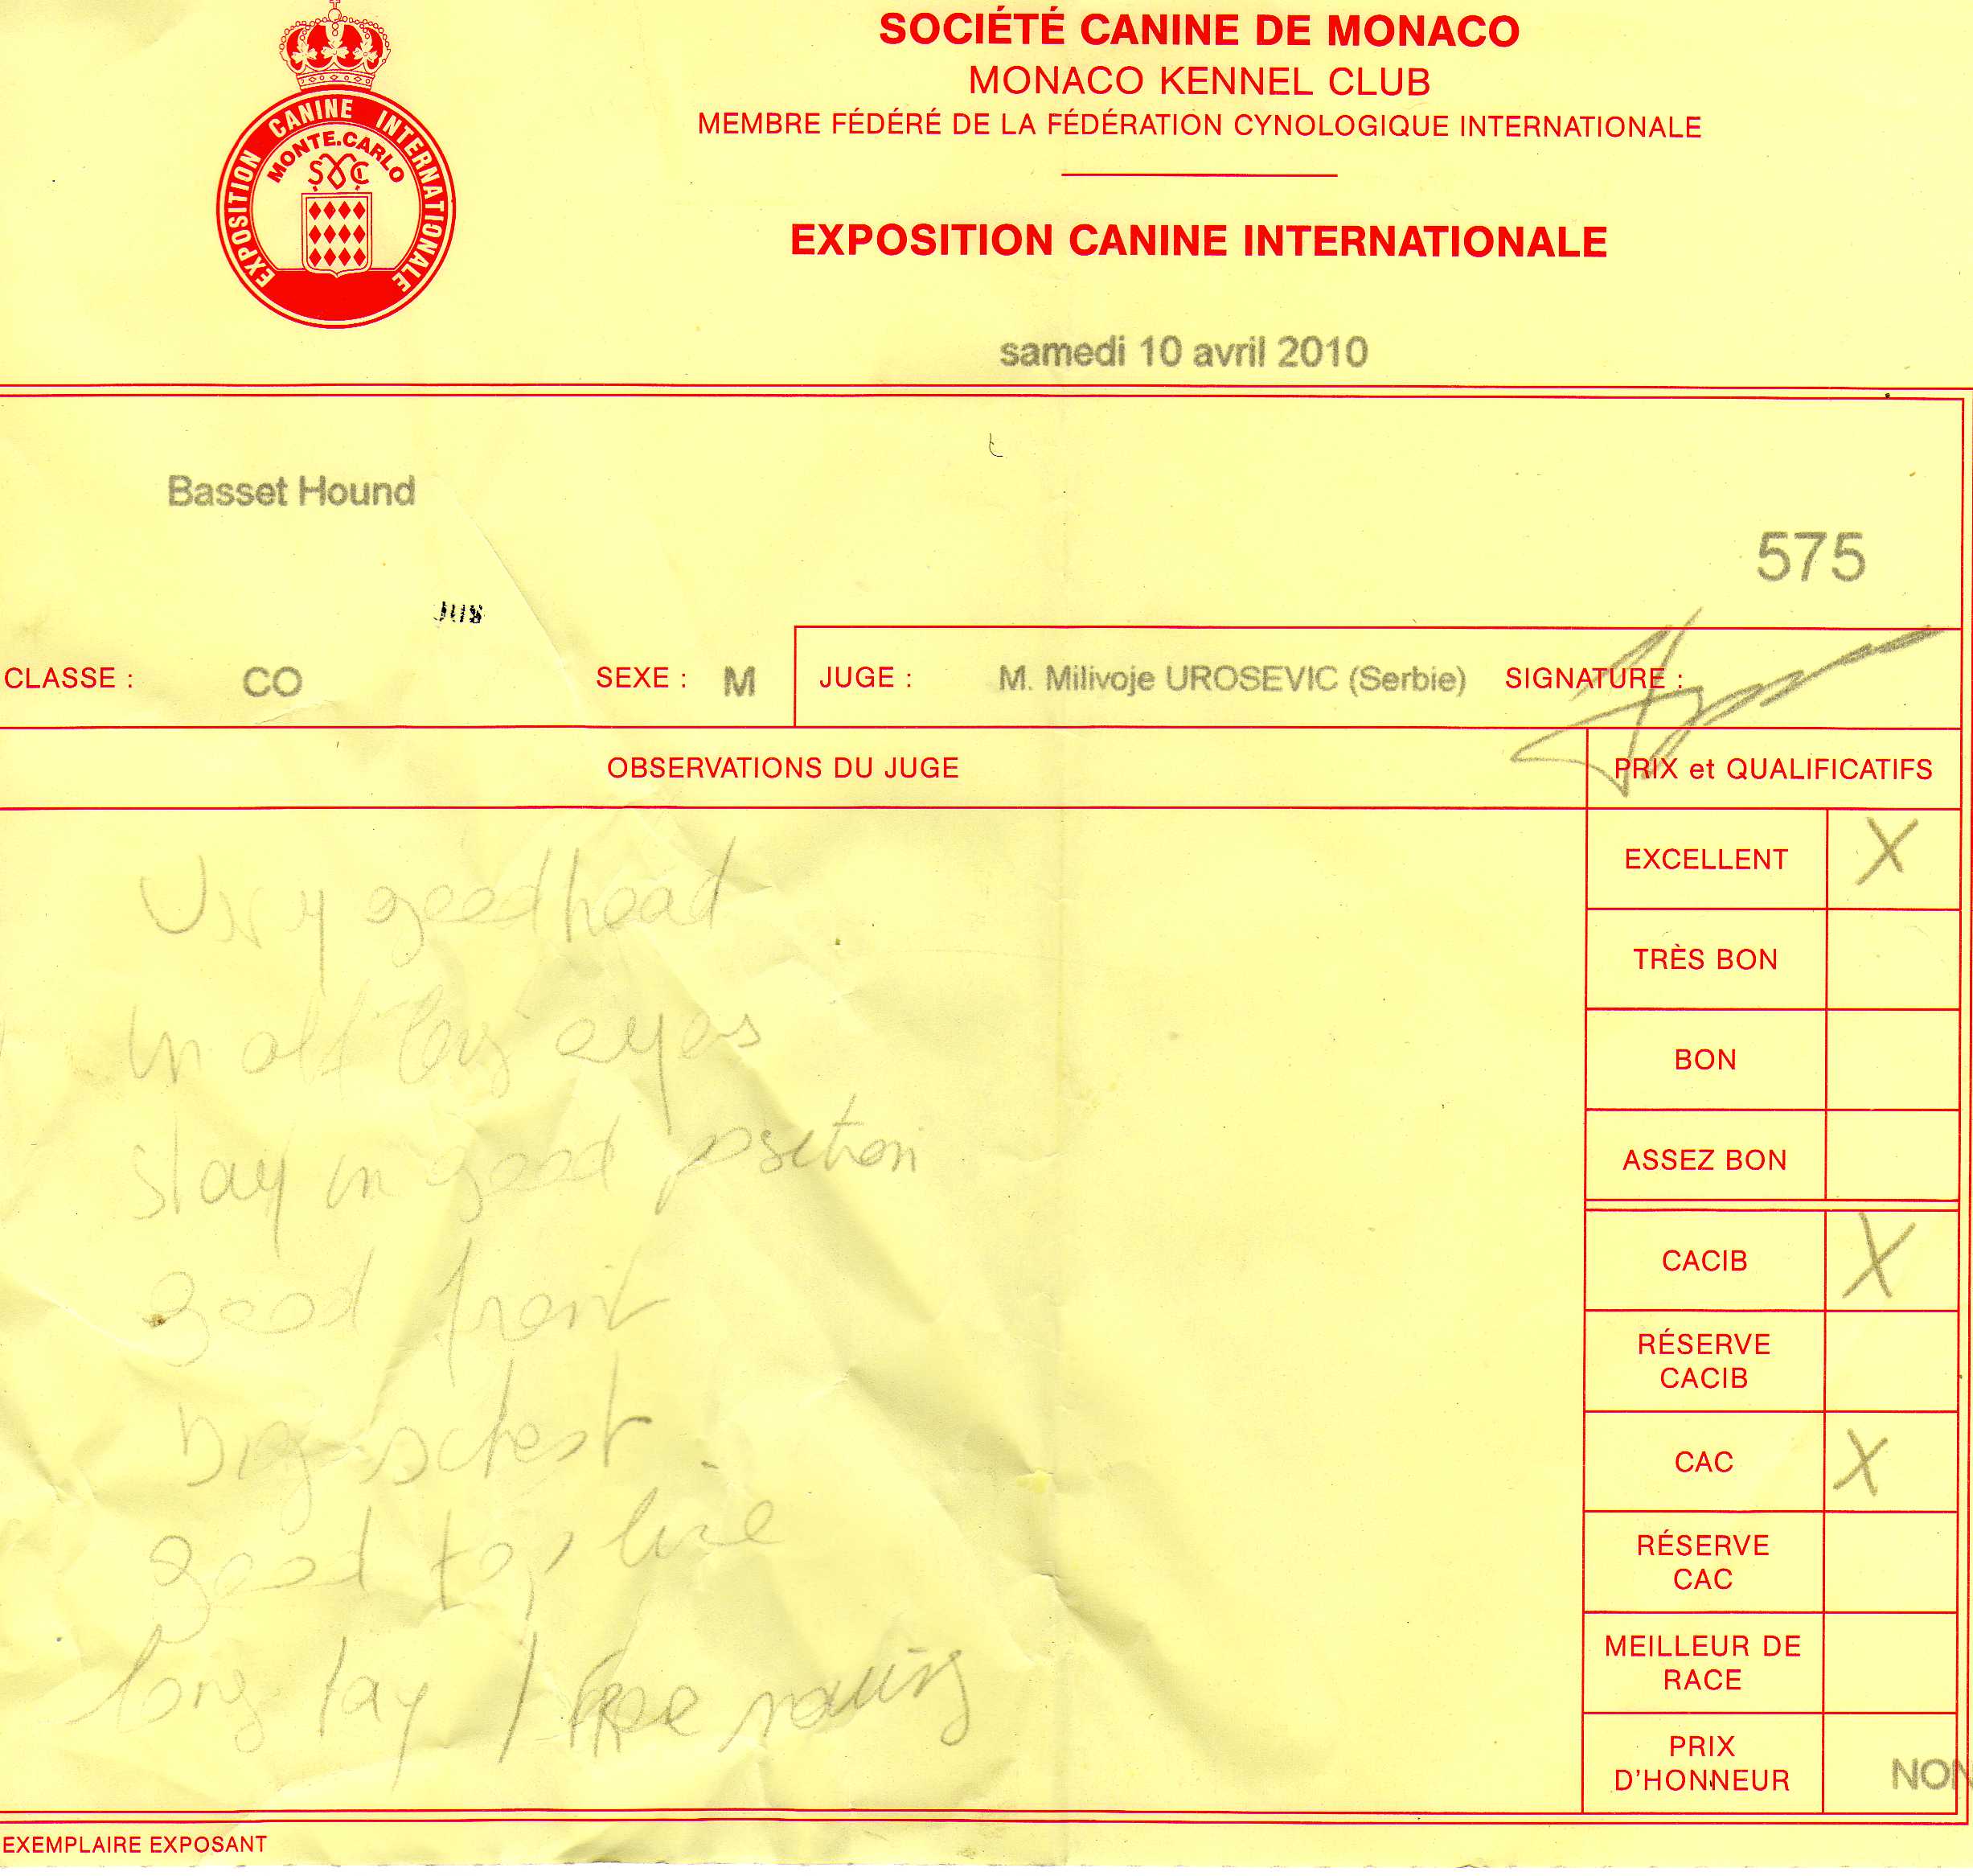 EXPOSITION CANINE INTERNATIONALE
MONTE.CARLO
SOCIÉTÉ CANINE DE MONACO
MONACO KENNEL CLUB
MEMBRE FÉDÉRÉ DE LA FÉDÉRATION CYNOLOGIQUE INTERNATIONALE
EXPOSITION CANINE INTERNATIONALE
samedi 10 avril 2010
Basset Hound
575
CLASSE : CO SEXE : M JUGE : M. Milivoje UROSEVIC (Serbie) SIGNATURE :
OBSERVATIONS DU JUGE
PRIX et QUALIFICATIFS
Very good head
eyes
stay in good position
good front
good top line
long / Free
EXCELLENT X
TRÈS BON
BON
ASSEZ BON
CACIB X
RÉSERVE
CACIB
CAC X
RÉSERVE
CAC
MEILLEUR DE
RACE
PRIX
D'HONNEUR NON
EXEMPLAIRE EXPOSANT